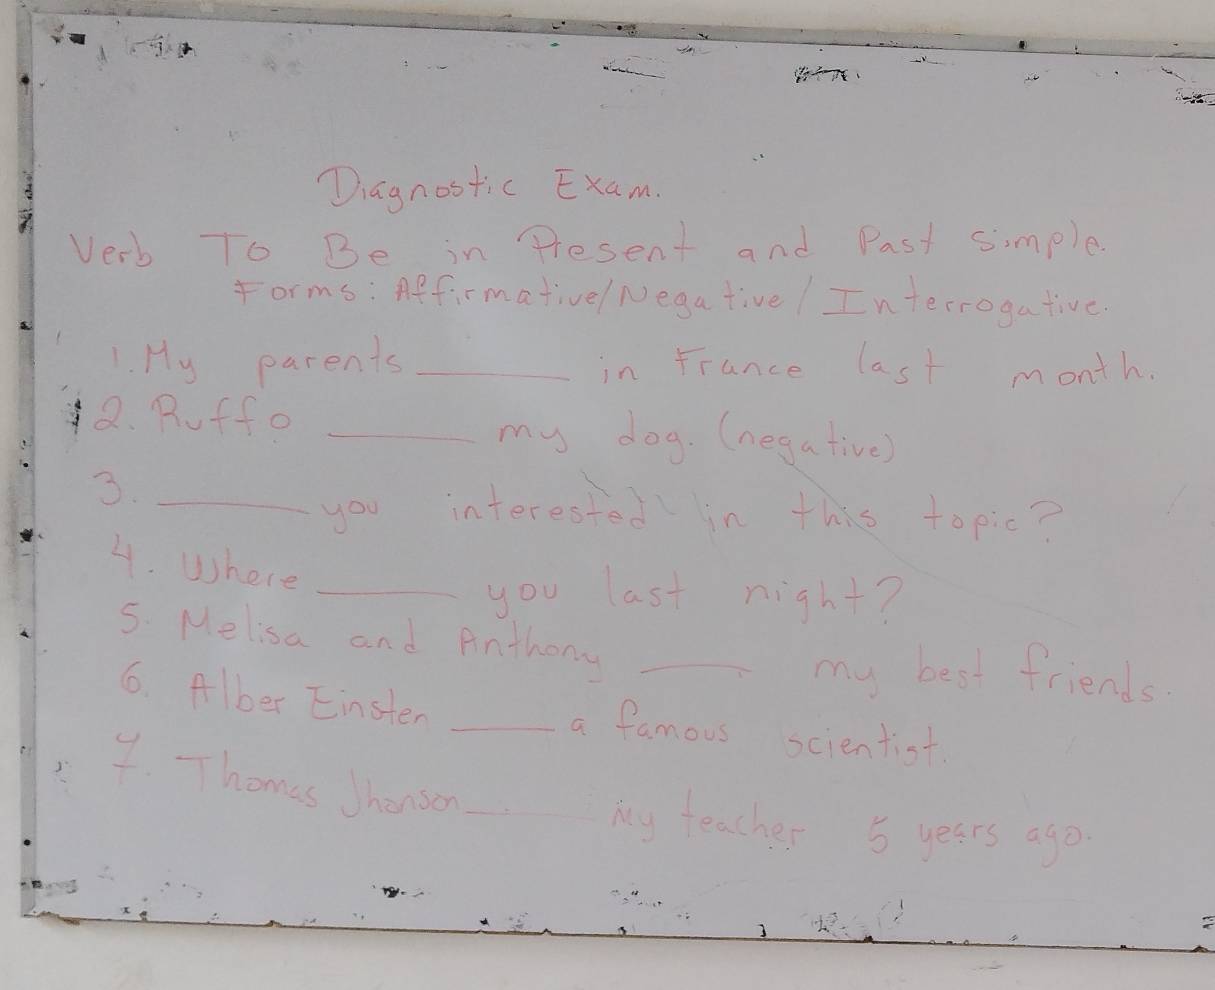 Diagnostic Exam.
Verb To Be in Present and Past Simple.
Forms: Affirmative/Negative/Interrogative.
1. My parents ______ in France last month.
2. Ruffo ______ my dog. (negative)
3. ______ you interested in this topic?
4. Where ______ you last night?
5. Melisa and Anthony ____ my best friends.
6. Alber Einsten ____ a famous scientist.
7. Thomas Jhonson ____ My teacher 5 years ago.